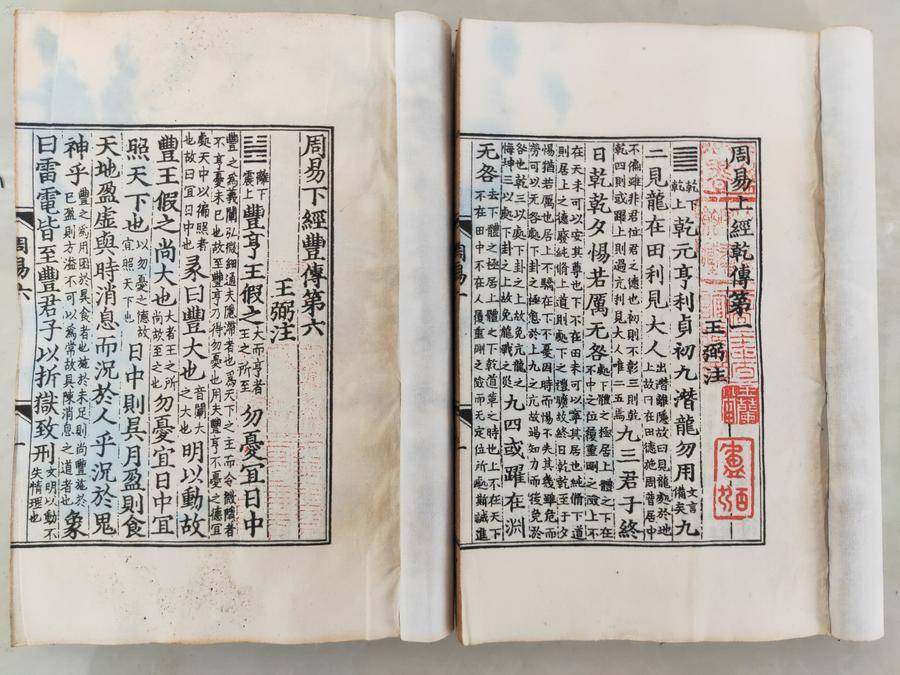 周易上經乾傳第一
王弼注
乾下
乾上
乾元亨利貞初九潛龍勿用
文言
備矣
九
二見龍在田利見大人
出潛離隱故曰見龍處於地
上故曰在田德施周普居中
不偏雖非君位君之德也初則不彰三則乾
乾四則或躍上則過亢利見大人唯二五焉
九三君子終
日乾乾夕惕若厲无咎
處下體之極居上體之下在
不中之位履重剛之險上不
在天未可以安其尊也下不在田未可以寧其居也純脩下道
則居上之德廢純脩上道則處下之禮曠故終日乾乾至于夕
惕猶若厲也居上不驕在下不憂因時而惕不失其幾雖危而
勞可以无咎處下卦之極愈於上九之亢故竭知力而後免於
咎也乾三以處下卦之上故免亢龍之
悔坤三以處下卦之上故免龍戰之災
九四或躍在淵
无咎
去下體之極居上體之下乾道革之時也上不在天下
不在田中不在人履重剛之險而无定位所處斯誠進
周易下經豐傳第六
王弼注
離下
震上
豐亨王假之
大而亨者
王之所至
勿憂宜日中
豐之為義闡弘微細通夫隱滯者也為天下之主而令微隱者
不亨憂未已也故至豐亨乃得勿憂也用夫豐亨不憂之德宜
處天中以徧照者
也故曰宜日中也
彖曰豐大也
音闡大
之大也
明以動故
豐王假之尚大也
大者王之所
尚故至之也
勿憂宜日中宜
照天下也
以勿憂之德故
宜照天下也
日中則昃月盈則食
天地盈虛與時消息而況於人乎況於鬼
神乎
豐之為用困於昃食者也施於未足則尚豐施於
已盈則方溢不可以為常故具陳消息之道者也
象
曰雷電皆至豐君子以折獄致刑
文明以動不
失情理也
周易六